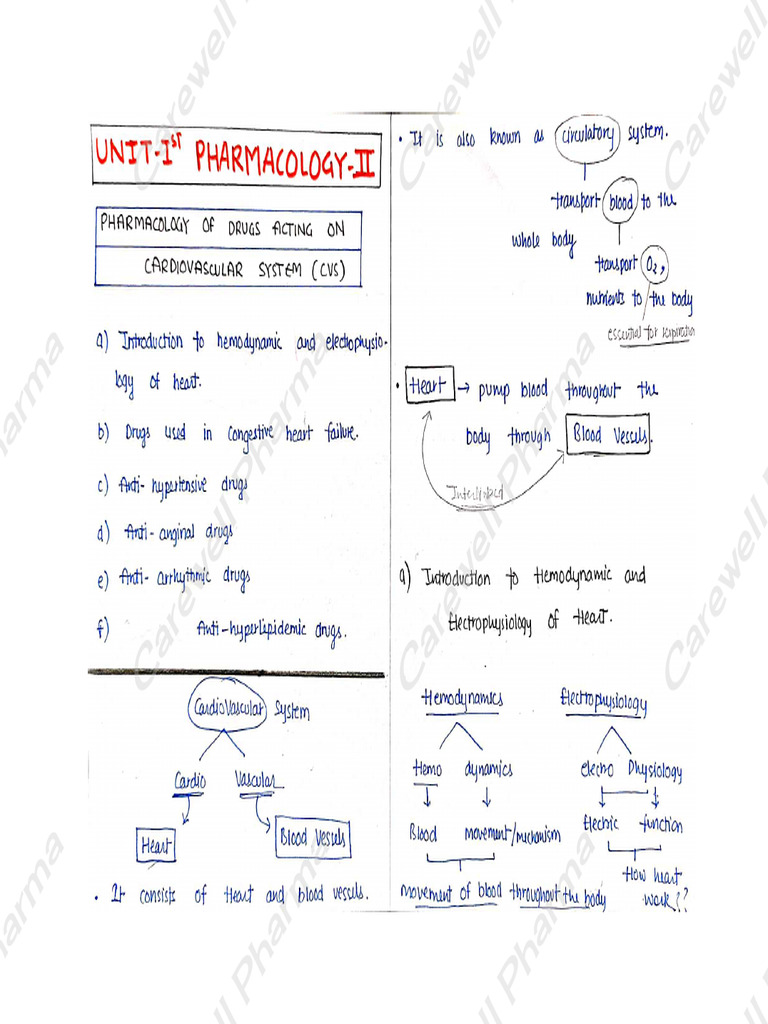 UNIT-Iˢᵀ PHARMACOLOGY-II
PHARMACOLOGY OF DRUGS ACTING ON
CARDIOVASCULAR SYSTEM (CVS)
a) Introduction to hemodynamic and electrophysio-
logy of heart.
b) Drugs used in congestive heart failure.
c) Anti-hypertensive drugs
d) Anti-anginal drugs
e) Anti-arrhythmic drugs
f) Anti-hyperlipidemic drugs.
CardioVascular System
Cardio Vascular
Heart
Blood Vessels
• It consists of Heart and blood vessels.
• It is also known as circulatory system.
transport blood to the
whole body
transport O₂,
nutrients to the body
essential for respiration
• Heart → pump blood throughout the
body through Blood Vessels.
Interlinked
a) Introduction to Hemodynamic and
Electrophysiology of Heart.
Hemodynamics Electrophysiology
Hemo dynamics electro Physiology
Blood movement/mechanism Electric function
movement of blood throughout the body
How heart
work??
Carewell Pharma